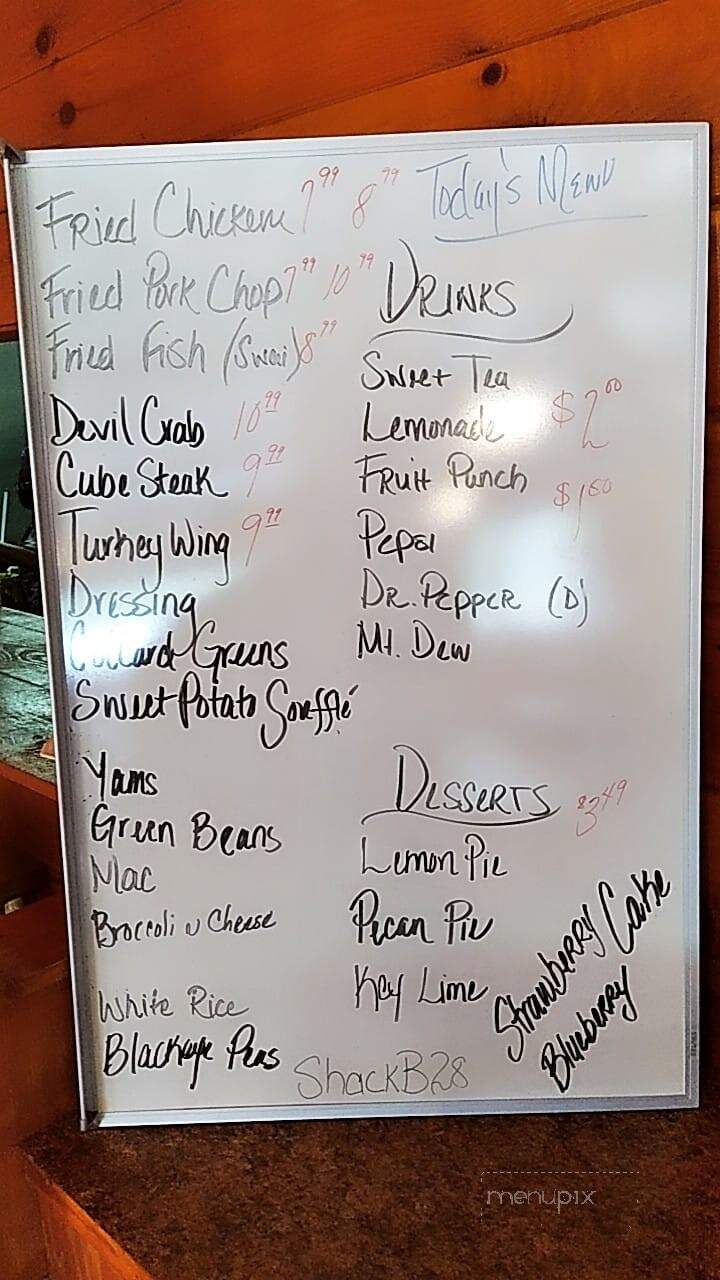 Today's Menu
Fried Chicken 7.99 8.99
Fried Pork Chop 7.99 10.99
Fried Fish (Swai) 8.99
Devil Crab 10.99
Cube Steak 9.99
Turkey Wing 9.99
Dressing
Collard Greens
Sweet Potato Soufflé
Yams
Green Beans
Mac
Broccoli n Cheese
White Rice
Blackeye Peas
Drinks
Sweet Tea
Lemonade $2.00
Fruit Punch
$1.50
Pepsi
Dr. Pepper (D)
Mt. Dew
Desserts $3.49
Lemon Pie
Pecan Pie
Key Lime
Strawberry Cake
Blueberry
ShackB28
menupix